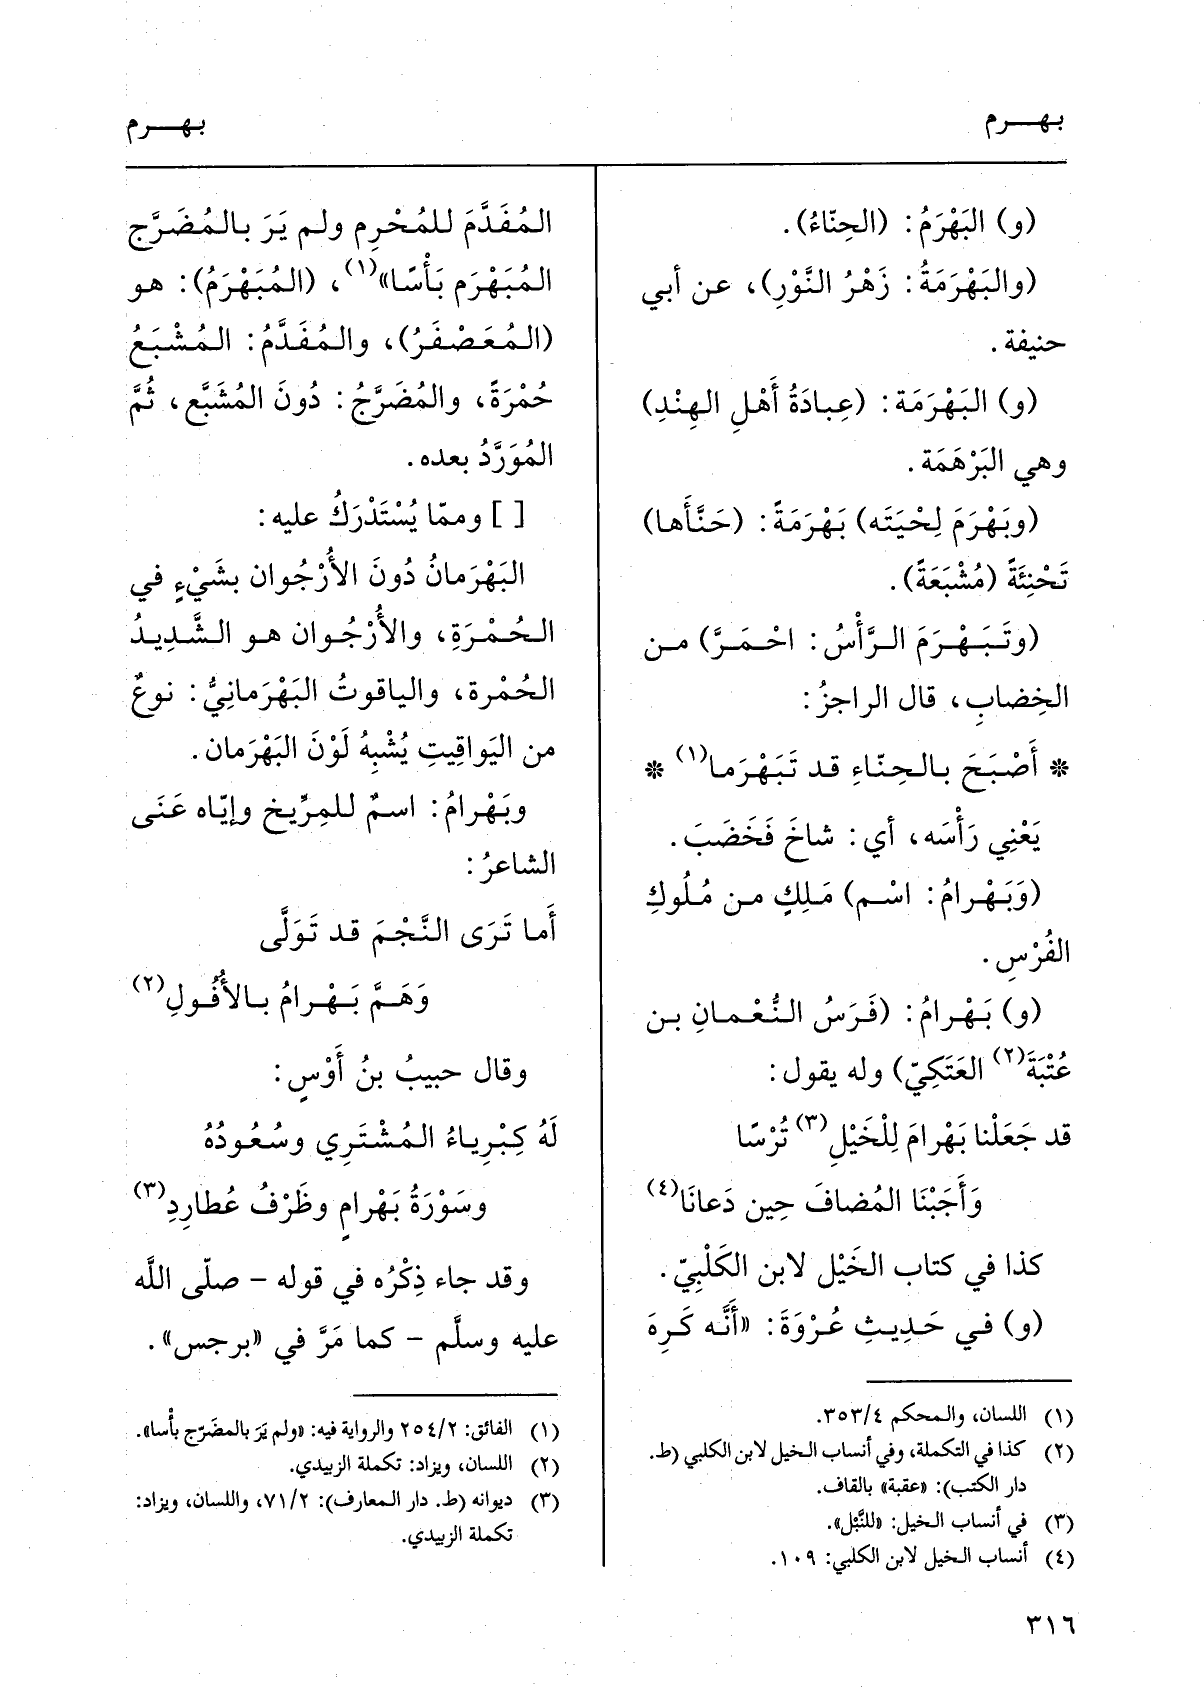 بهـــرم
بهـــرم
(و) البَهْرَمُ: (الحِنّاءُ).
(والبَهْرَمَةُ: زَهْرُ النَّوْرِ)، عن أبي
حنيفة.
(و) البَهْرَمَة: (عِبادَةُ أَهْلِ الهِنْدِ)
وهي البَرْهَمَة.
(وبَهْرَمَ لِحْيَتَه) بَهْرَمَةً: (حَنَّأَها)
تَحْنِئَةً (مُشْبَعَةً).
(وتَبَهْرَمَ الرَّأْسُ: احْمَرَّ) من
الخِضابِ، قال الراجزُ:
* أَصْبَحَ بالحِنّاءِ قد تَبَهْرَما(١) *
يَعْنِي رَأْسَه، أي: شاخَ فَخَضَبَ.
(وَبَهْرامُ: اسْم) مَلِكٍ من مُلُوكِ
الفُرْسِ.
(و) بَهْرامُ: (فَرَسُ النُّعْمانِ بن
عُتْبَةَ(٢) العَتَكِيّ) وله يقول:
قد جَعَلْنا بَهْرامَ لِلْخَيْلِ(٣) تُرْسًا
وَأَجَبْنَا المُضافَ حِين دَعانَا(٤)
كذا في كتاب الخَيْل لابن الكَلْبِيّ.
(و) في حَدِيثِ عُرْوَةَ: «أَنَّه كَرِهَ
(١) اللسان، والمحكم ٣٥٣/٤.
(٢) كذا في التكملة، وفي أنساب الخيل لابن الكلبي (ط.
دار الكتب): «عقبة» بالقاف.
(٣) في أنساب الخيل: «للنَّبْل».
(٤) أنساب الخيل لابن الكلبي: ١٠٩.
المُفَدَّمَ للمُحْرِم ولم يَرَ بالمُضَرَّج
المُبَهْرَم بَأْسًا»(١)، (المُبَهْرَمُ): هو
(المُعَصْفَرُ)، والمُفَدَّمُ: المُشْبَعُ
حُمْرَةً، والمُضَرَّجُ: دُونَ المُشَبَّع، ثُمَّ
المُوَرَّدُ بعده.
[ ] وممّا يُسْتَدْرَكُ عليه:
البَهْرَمانُ دُونَ الأُرْجُوان بشَيْءٍ في
الحُمْرَةِ، والأُرْجُوان هو الشَّدِيدُ
الحُمْرة، والياقوتُ البَهْرَمانِيُّ: نوعٌ
من اليَواقِيتِ يُشْبِهُ لَوْنَ البَهْرَمان.
وبَهْرامُ: اسمٌ للمِرِّيخ وإيّاه عَنَى
الشاعرُ:
أَما تَرَى النَّجْمَ قد تَوَلَّى
وَهَمَّ بَهْرامُ بالأُفُولِ(٢)
وقال حبيبُ بنُ أَوْسٍ:
لَهُ كِبْرِياءُ المُشْتَرِي وسُعُودُهُ
وسَوْرَةُ بَهْرامٍ وظَرْفُ عُطارِدِ(٣)
وقد جاء ذِكْرُه في قوله – صلّى اللَّه
عليه وسلَّم – كما مَرَّ في «برجس».
(١) الفائق: ٢٥٤/٢ والرواية فيه: «ولم يَرَ بالمضَرّج بأْسا».
(٢) اللسان، ويزاد: تكملة الزبيدي.
(٣) ديوانه (ط. دار المعارف): ٧١/٢، واللسان، ويزاد:
تكملة الزبيدي.
٣١٦